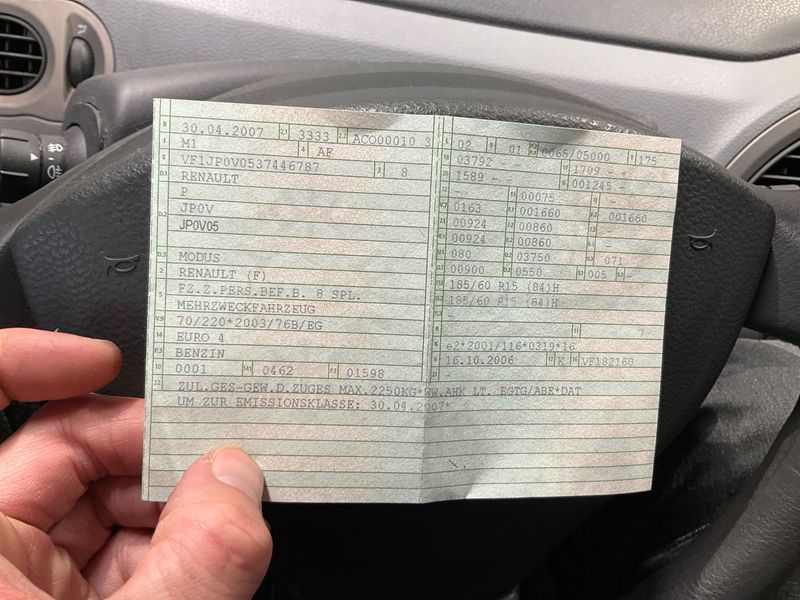 B 30.04.2007 2.1 3333 2.2 ACO00010 3
J M1 4 AF
E VF1JP0V0537446787 3 8
D.1 RENAULT
P
D.2 JP0V
JP0V05
D.3 MODUS
2 RENAULT (F)
5 FZ.Z.PERS.BEF.B. 8 SPL.
MEHRZWECKFAHRZEUG
V.9 70/220*2003/76B/EG
14 EURO 4
P.3 BENZIN
10 0001 14.1 0462 P.1 01598
22 ZUL.GES-GEW.D.ZUGES MAX.2250KG*WW.AHK LT. EGTG/ABE*DAT
UM ZUR EMISSIONSKLASSE: 30.04.2007*
L 02 9 01 P.2 P.4 0065/05000 T 175
18 03792 - - 19 1709 - -
20 1589 - - G 001245 -
12 - 13 00075 Q -
V.7 0163 F.1 001660 F.2 001660
7.1 00924 7.2 00860 7.3 -
8.1 00924 8.2 00860 8.3 -
U.1 080 U.2 03750 U.3 071
O.1 00900 O.2 0550 S.1 005 S.2 -
15.1 185/60 R15 (84)H
15.2 185/60 R15 (84)H
15.3 -
R - 11 7
K e2*2001/116*0319*16
6 16.10.2006 17 K 16 VF182160
21